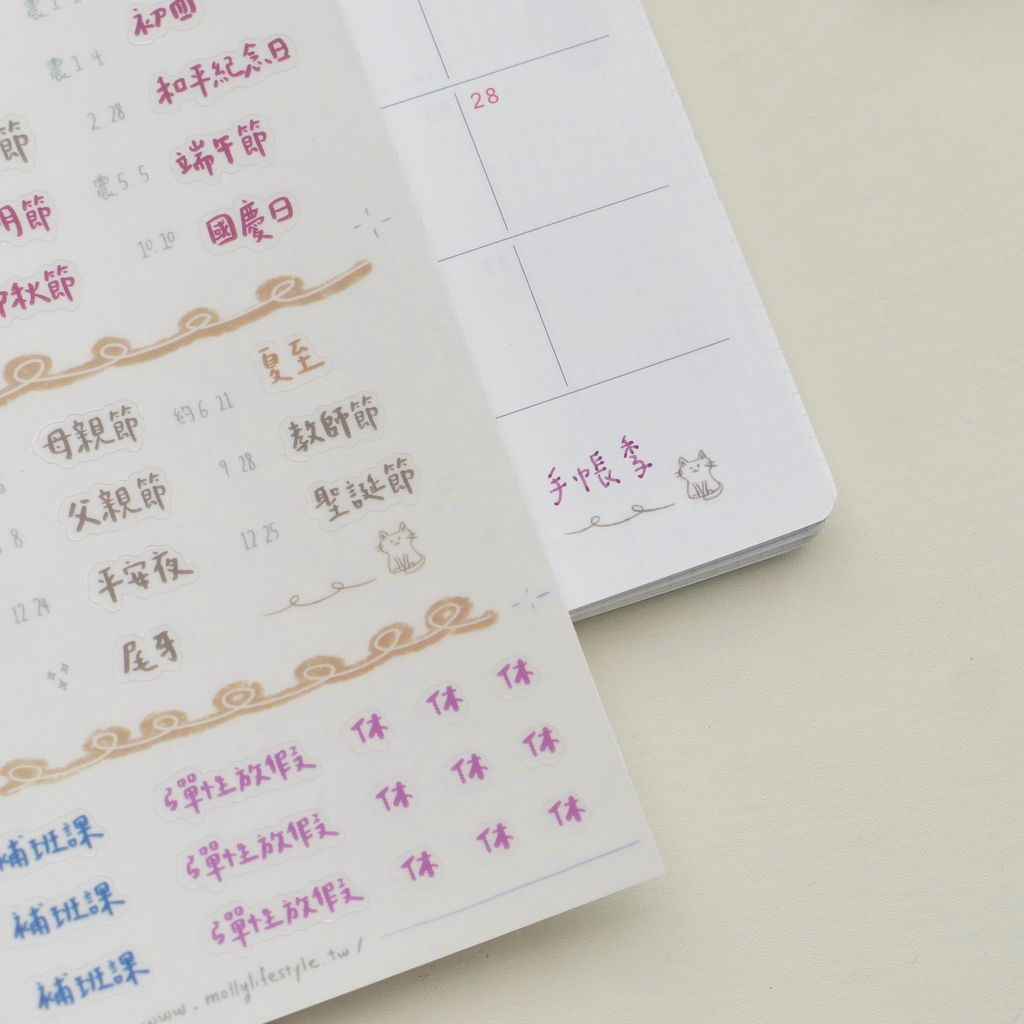 農1 4
初四
2.28
和平紀念日
節
農5 5
端午節
明節
10.10
國慶日
秋節
夏至
母親節
約6 21
教師節
父親節
9 28
聖誕節
8
平安夜
12 25
12 24
尾牙
休 休 休
彈性放假
補班課
休 休 休
彈性放假
補班課
休 休 休
彈性放假
補班課
www.mollylifestyle.tw/
28
手帳季